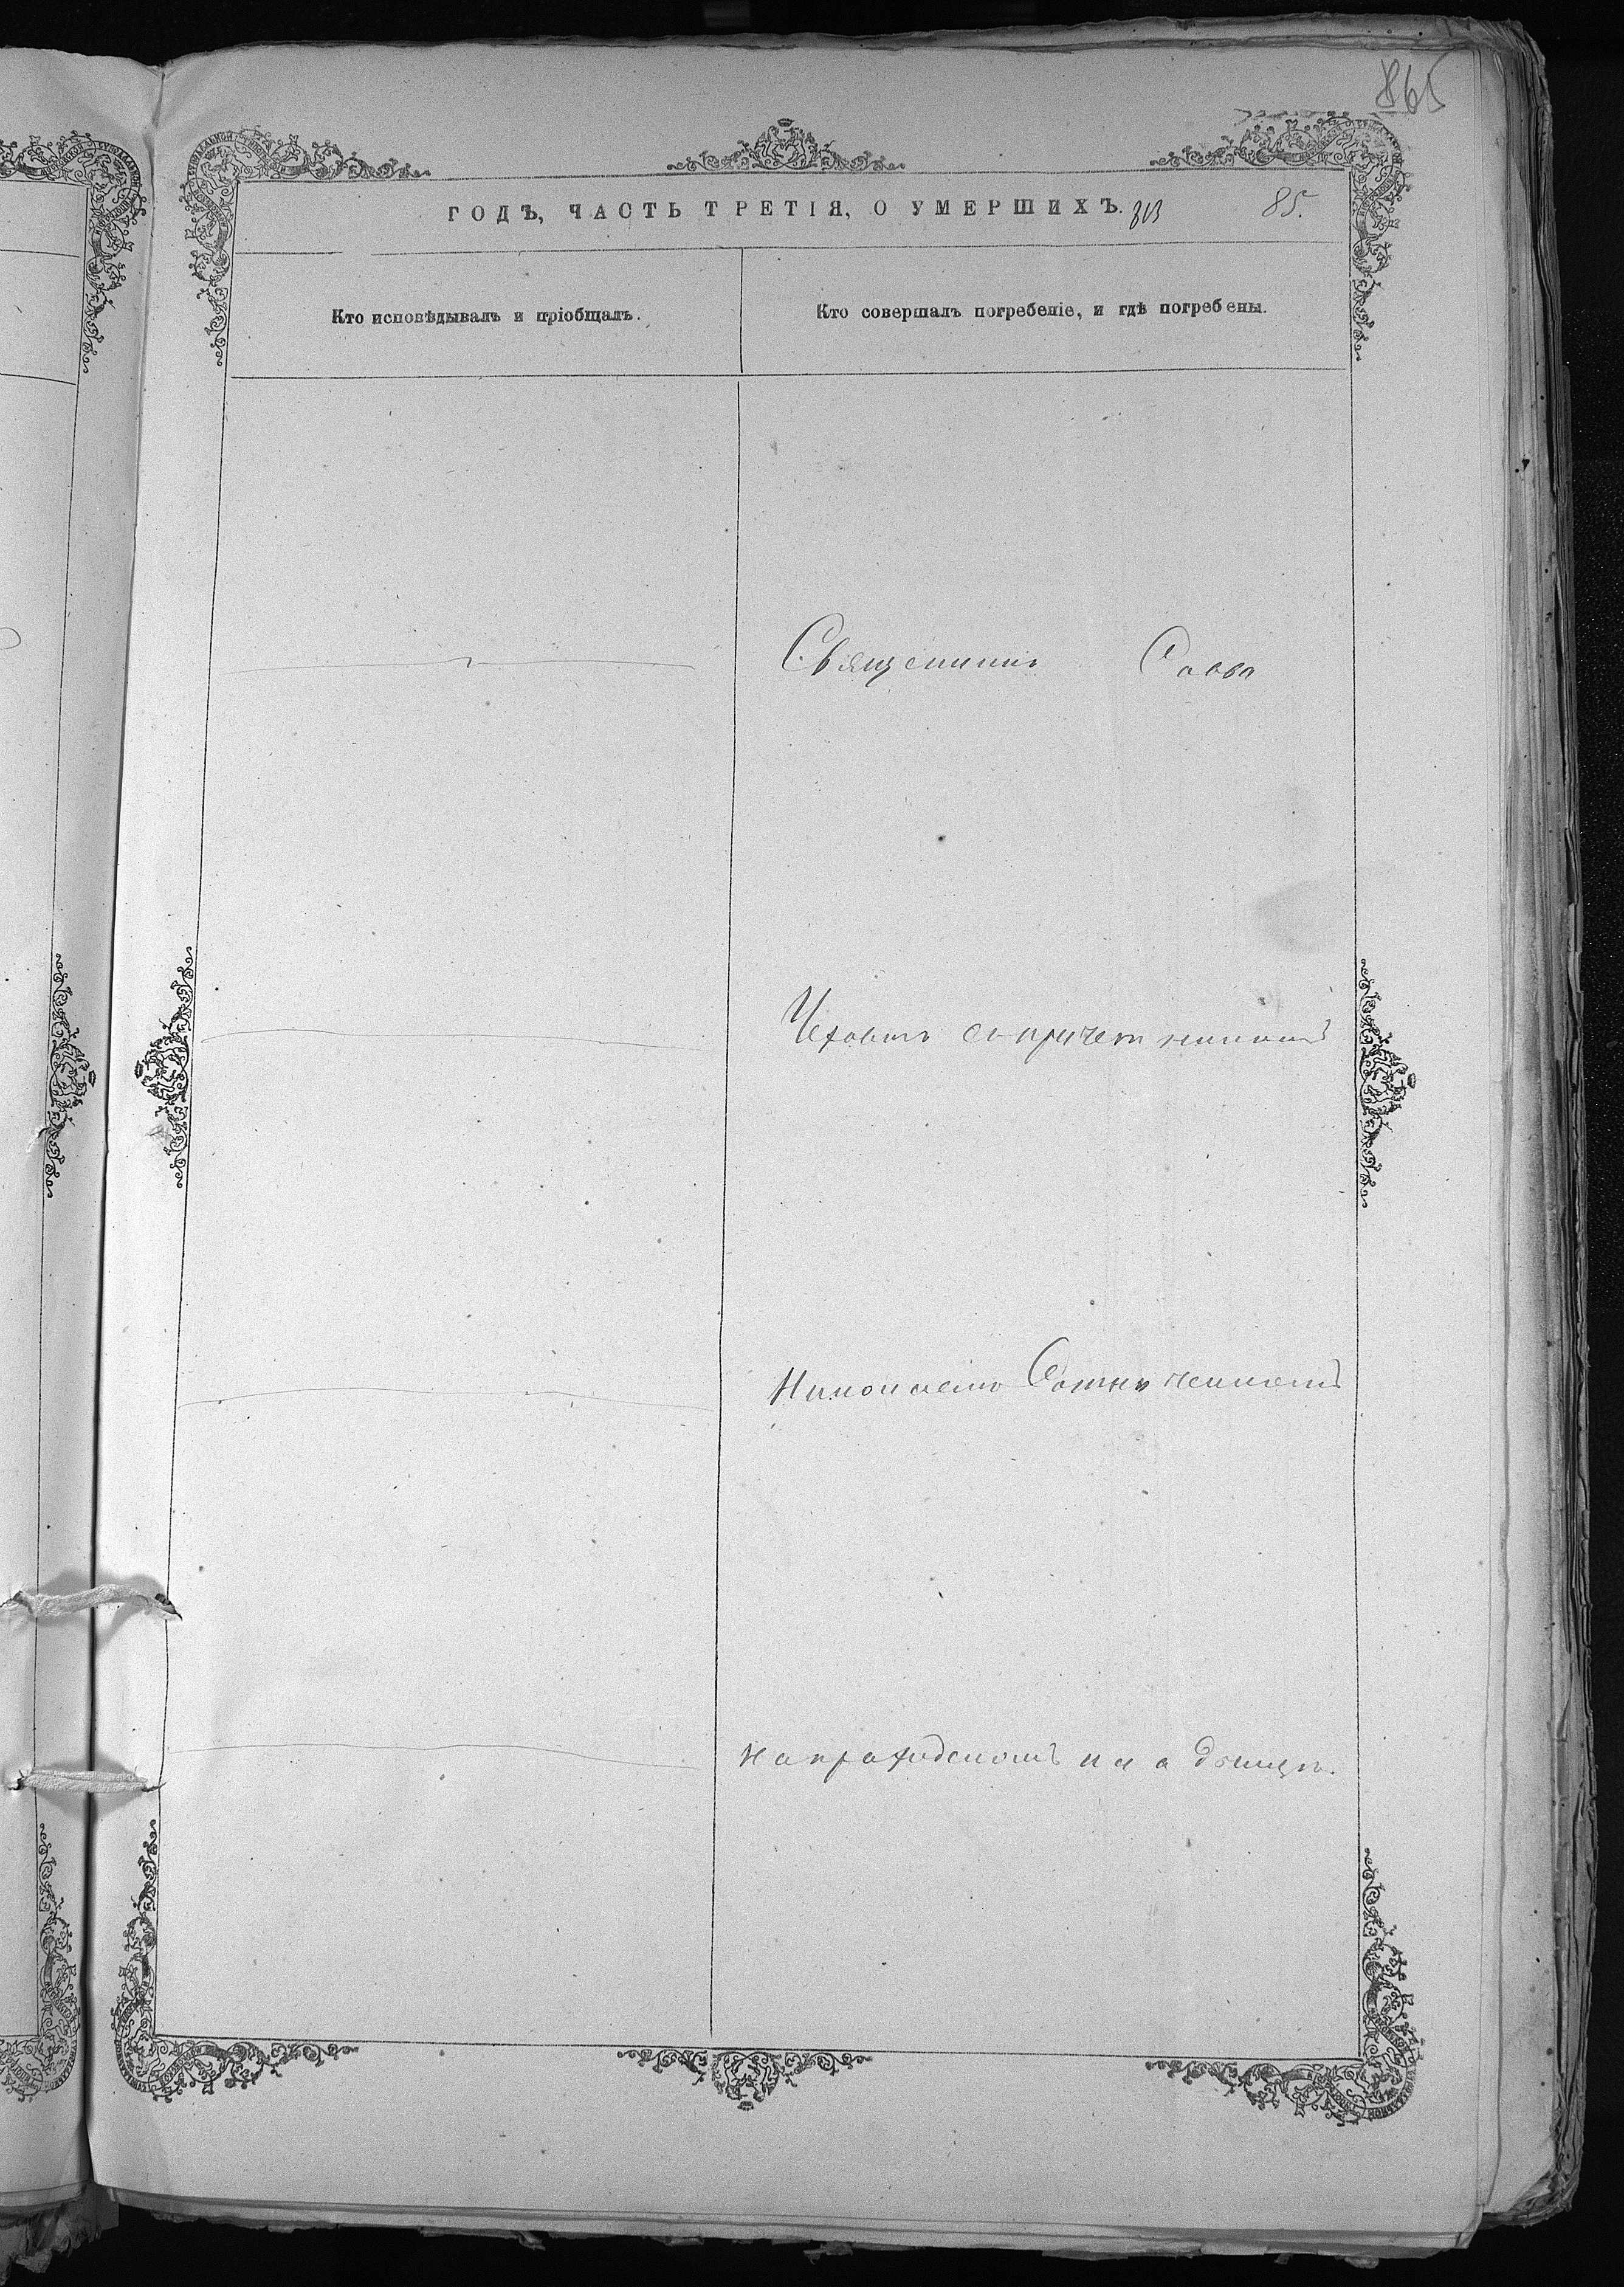 865
ГОДЪ, ЧАСТЬ ТРЕТІЯ, О УМЕРШИХЪ. 313 85.
Кто исповѣдывалъ и пріобщалъ.
Кто совершалъ погребеніе, и гдѣ погребены.
Священникъ Савва
съ причетникомъ
на приходскомъ кладбищѣ.